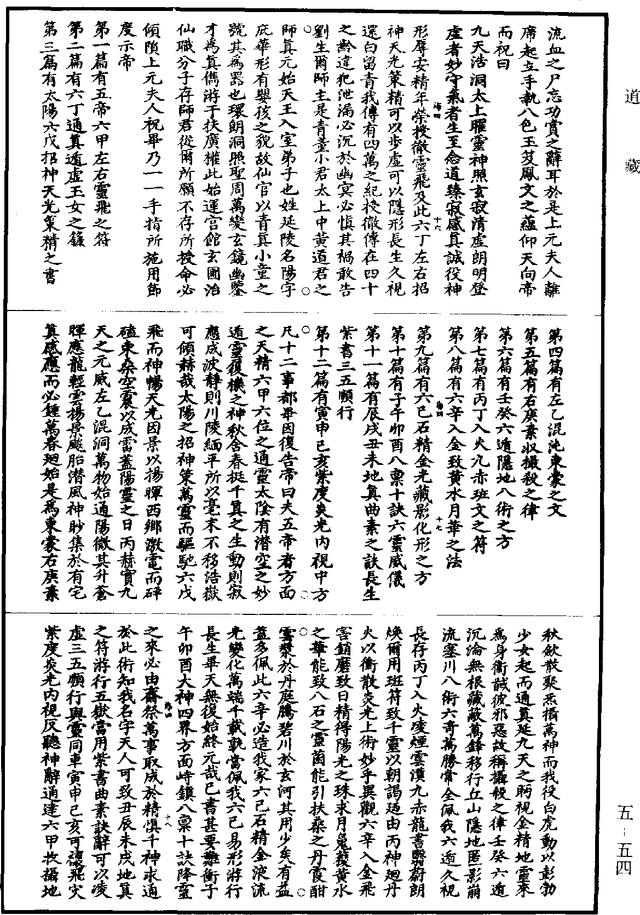 道藏
流血之尸忘功賞之辭耳於是上元夫人離
席起立手執八色玉笈鳳文之蘊仰天向帝
而祝曰
九天浩洞太上曜靈神照玄寂清虛朗明登
虛者妙守氣者生至念道臻寂感真誠役神
形辱安精年榮授徹靈飛及此六丁左右招
神天光策精可以步虛可以隱形長生久視
還白留青我傳有四萬之紀授徹傳在四十
之齡違犯泄漏必沉於幽冥必慎其禍敢告
劉生爾師主是青童小君太上中黃道君之
師真元始天王入室弟子也姓延陵名陽字
庇華形有嬰孩之貌故仙官以青真小童之
號其為器也環朗洞照聖周萬變玄鏡幽鑒
才為真儁游于扶廣權此始運宮館玄圃治
仙職分子存師君從爾所願不存所授命必
傾隕上元夫人祝畢乃一一手指所施用節
度示帝
第一篇有五帝六甲左右靈飛之符
第二篇有六丁通真遁虛玉女之籙
第三篇有太陽六戊招神天光策精之書
第四篇有左乙混沌東蒙之文
第五篇有右庚素收攝殺之律
第六篇有壬癸六遁隱地八術之方
第七篇有丙丁入火九赤班文之符
第八篇有六辛入金致黃水月華之法
第九篇有六己石精金光藏影化形之方
第十篇有子午卯酉八稟十訣六靈威儀
第十一篇有辰戌丑未地真曲素之訣長生
紫書三五順行
第十二篇有寅申巳亥紫度炎光內視中方
凡十二事都畢因復告帝曰夫五帝者方面
之天精六甲六位之通靈太陰有潛空之妙
遁靈復機之神秋舍春挺千真之生動則寂
應成波靜則川陵緬平所以毫末不移浩嶽
可傾赫哉太陽之招神策萬靈而驅馳六戊
飛而神暢天光因景以揚暉西鄉激電而砰
磕東朵空窶以成雷蓋陽靈之日丙赫實九
天之元威左乙混洞萬物始通陽微其升蒼
暉應龍輕雲揚景飈胎潛風神眇集於有宅
真感應而必鍾萬春迴始是為東蒙右庚素
秋斂散聚炁揃萬神而我役白虎動以彭勃
少女起而通真延九天之眄視金精地靈來
為身衛誠彼邪惡故稱攝殺之律壬癸六遁
沉淪無根藏蔽萬鋒移行丘山隱地匿影崩
流塞川八術六奇萬勝賞全佩我六遁久視
長存丙丁入火凌煙雲漢九赤龍書照蔚朗
煥爾用班符致千靈以朝謁迺由丙神廻丹
火以衝散炎光上術妙乎異觀六辛入金飛
宮銷磨致日精得陽光之珠求月蒐獲黃水
之華能致八石之靈菌能引扶桑之丹霞酣
雲漿於丹庭騰碧川於玄河其用少矣有益
蓋多佩此六辛必造我家六己石精金液流
光變化萬端千載孰當佩我六己易形將行
長生畢天無復始終元哉已書甚要難衝子
午卯酉大神四界方面峙鎮八稟十訣降靈
之來必由齋祭萬事取成於精慎千神求通
於此術知我名字天人可致丑辰未戌地真
之符將行五嶽當用紫書曲素訣辭可以凌
虛三五順行與靈同車寅申巳亥可禳飛災
紫度炎光內視反聽神辭通達六甲攸攝地
五－五四